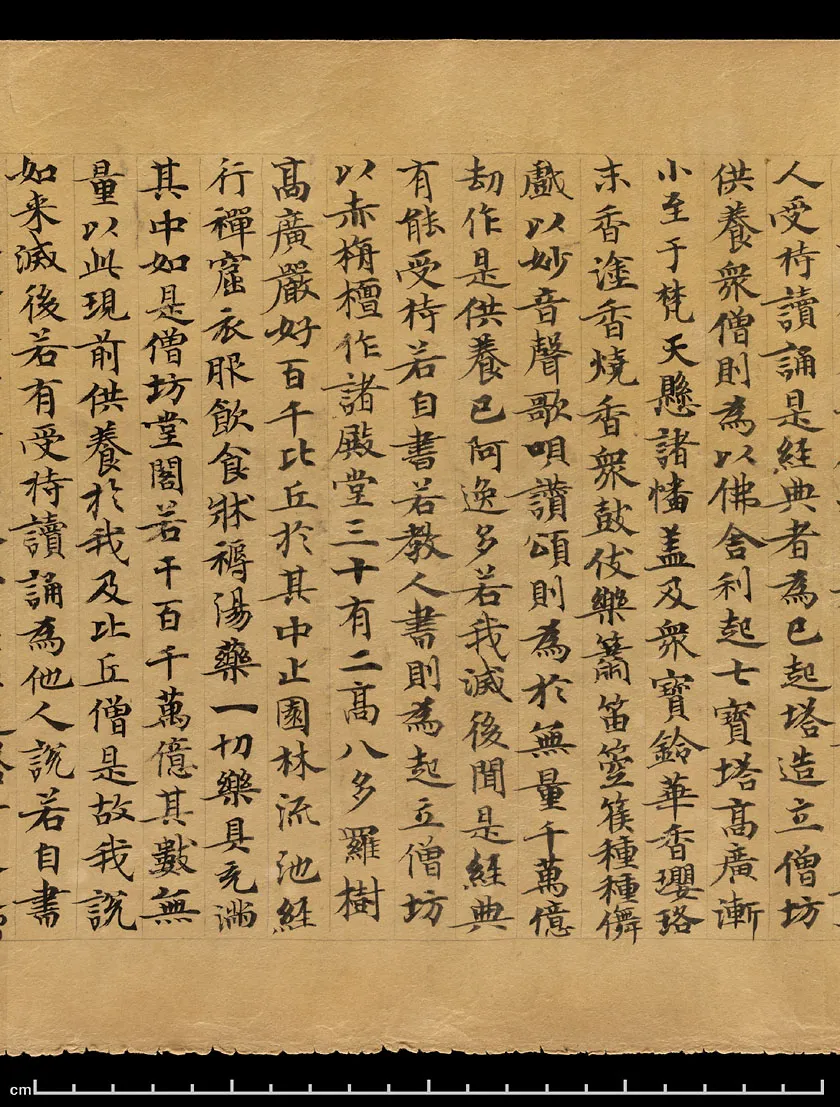 人受持讀誦是經典者為已起塔造立僧坊
供養衆僧則為以佛舍利起七寶塔高廣漸
小至于梵天懸諸幡蓋及衆寶鈴華香瓔珞
末香塗香燒香衆鼓伎樂簫笛箜篌種種儛
戲以妙音聲歌唄讚頌則為於無量千萬億
劫作是供養已阿逸多若我滅後聞是經典
有能受持若自書若教人書則為起立僧坊
以赤栴檀作諸殿堂三十有二高八多羅樹
高廣嚴好百千比丘於其中止園林流池經
行禪窟衣服飲食牀褥湯藥一切樂具充滿
其中如是僧坊堂閣若干百千萬億其數無
量以此現前供養於我及比丘僧是故我說
如来滅後若有受持讀誦為他人說若自書
cm